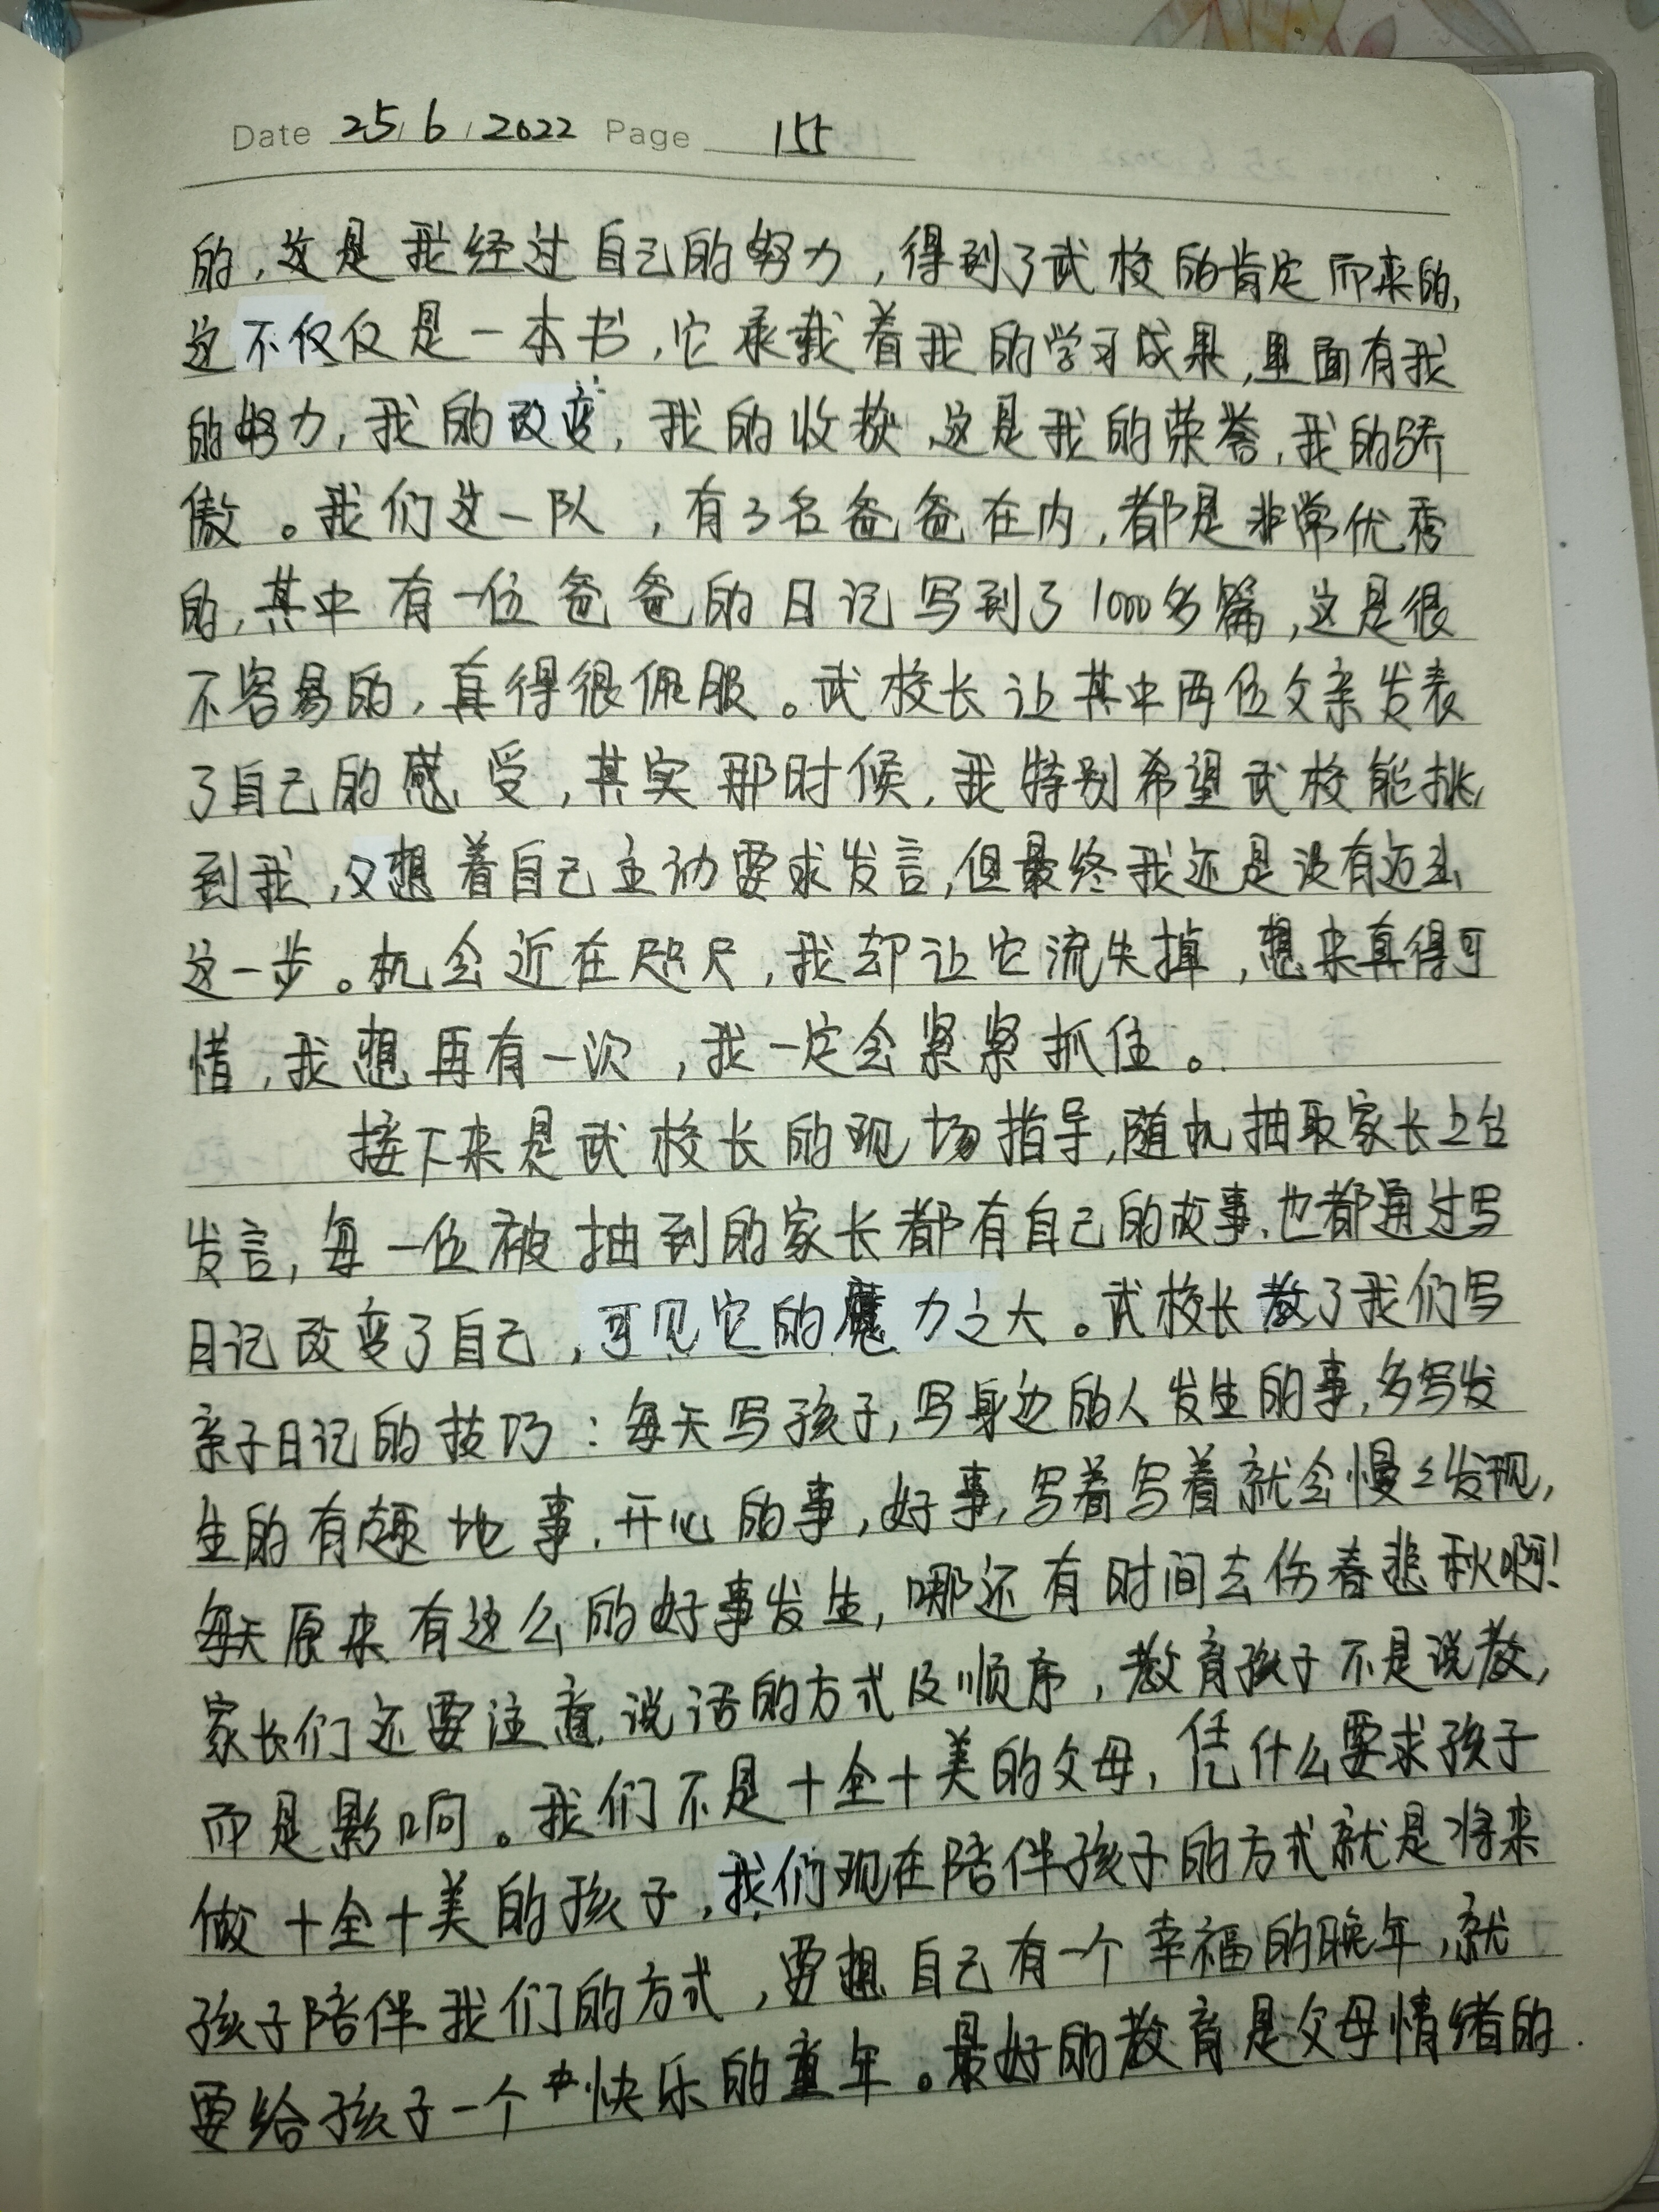 Date 25/6/2022 Page 155
的,这是我经过自己的努力,得到了武校的肯定而来的,
这不仅仅是一本书,它承载着我的学习成果,里面有我
的努力,我的改变,我的收获,这是我的荣誉,我的骄
傲。我们这一队,有3名爸爸在内,都是非常优秀
的,其中有一位爸爸的日记写到了1000多篇,这是很
不容易的,真得很佩服。武校长让其中两位父亲发表
了自己的感受,其实那时候,我特别希望武校能挑
到我,又想着自己主动要求发言,但最终我还是没有迈出
这一步。机会近在咫尺,我却让它流失掉,想来真得可
惜,我想再有一次,我一定会紧紧抓住。
接下来是武校长的现场指导,随机抽取家长上台
发言,每一位被抽到的家长都有自己的故事,也都通过写
日记改变了自己,可见它的魔力之大。武校长教了我们写
亲子日记的技巧:每天写孩子,写身边的人发生的事,多写发
生的有趣地事,开心的事,好事,写着写着就会慢々发现,
每天原来有这么的好事发生,哪还有时间去伤春悲秋啊!
家长们还要注意,说话的方式及顺序,教育孩子不是说教,
而是影响。我们不是十全十美的父母,凭什么要求孩子
做十全十美的孩子,我们现在陪伴孩子的方式就是将来
孩子陪伴我们的方式,要想自己有一个幸福的晚年,就
要给孩子一个快乐的童年。最好的教育是父母情绪的